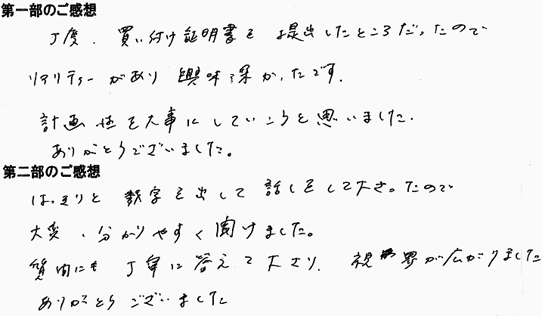 第一部のご感想
丁度、買い付け証明書を提出したところだったので
リアリティーがあり興味深かったです。
計画性を大事にしていこうと思いました。
ありがとうございました。
第二部のご感想
はっきりと数字を出して話しをして下さったので
大変、分かりやすく聞けました。
質問にも丁寧に答えて下さり、視界が広がりました
ありがとうございました